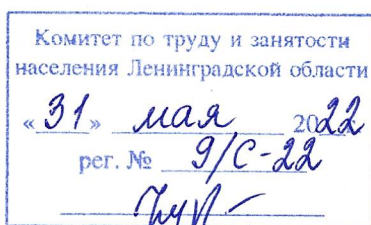 Комитет по труду и занятости
населения Ленинградской области
«31» мая 2022
рег. № 9/С-22